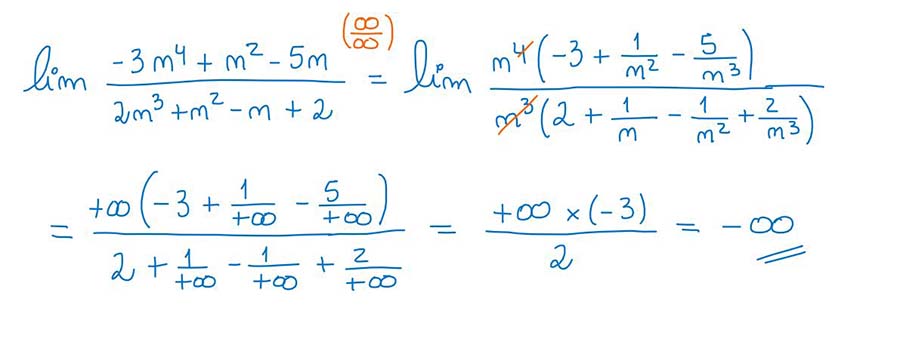 lim (-3m⁴ + m² - 5m)/(2m³ + m² - m + 2) (∞/∞) = lim (m⁴(-3 + 1/m² - 5/m³))/(m³(2 + 1/m - 1/m² + 2/m³))
= (+∞(-3 + 1/+∞ - 5/+∞))/(2 + 1/+∞ - 1/+∞ + 2/+∞) = (+∞ × (-3))/2 = -∞